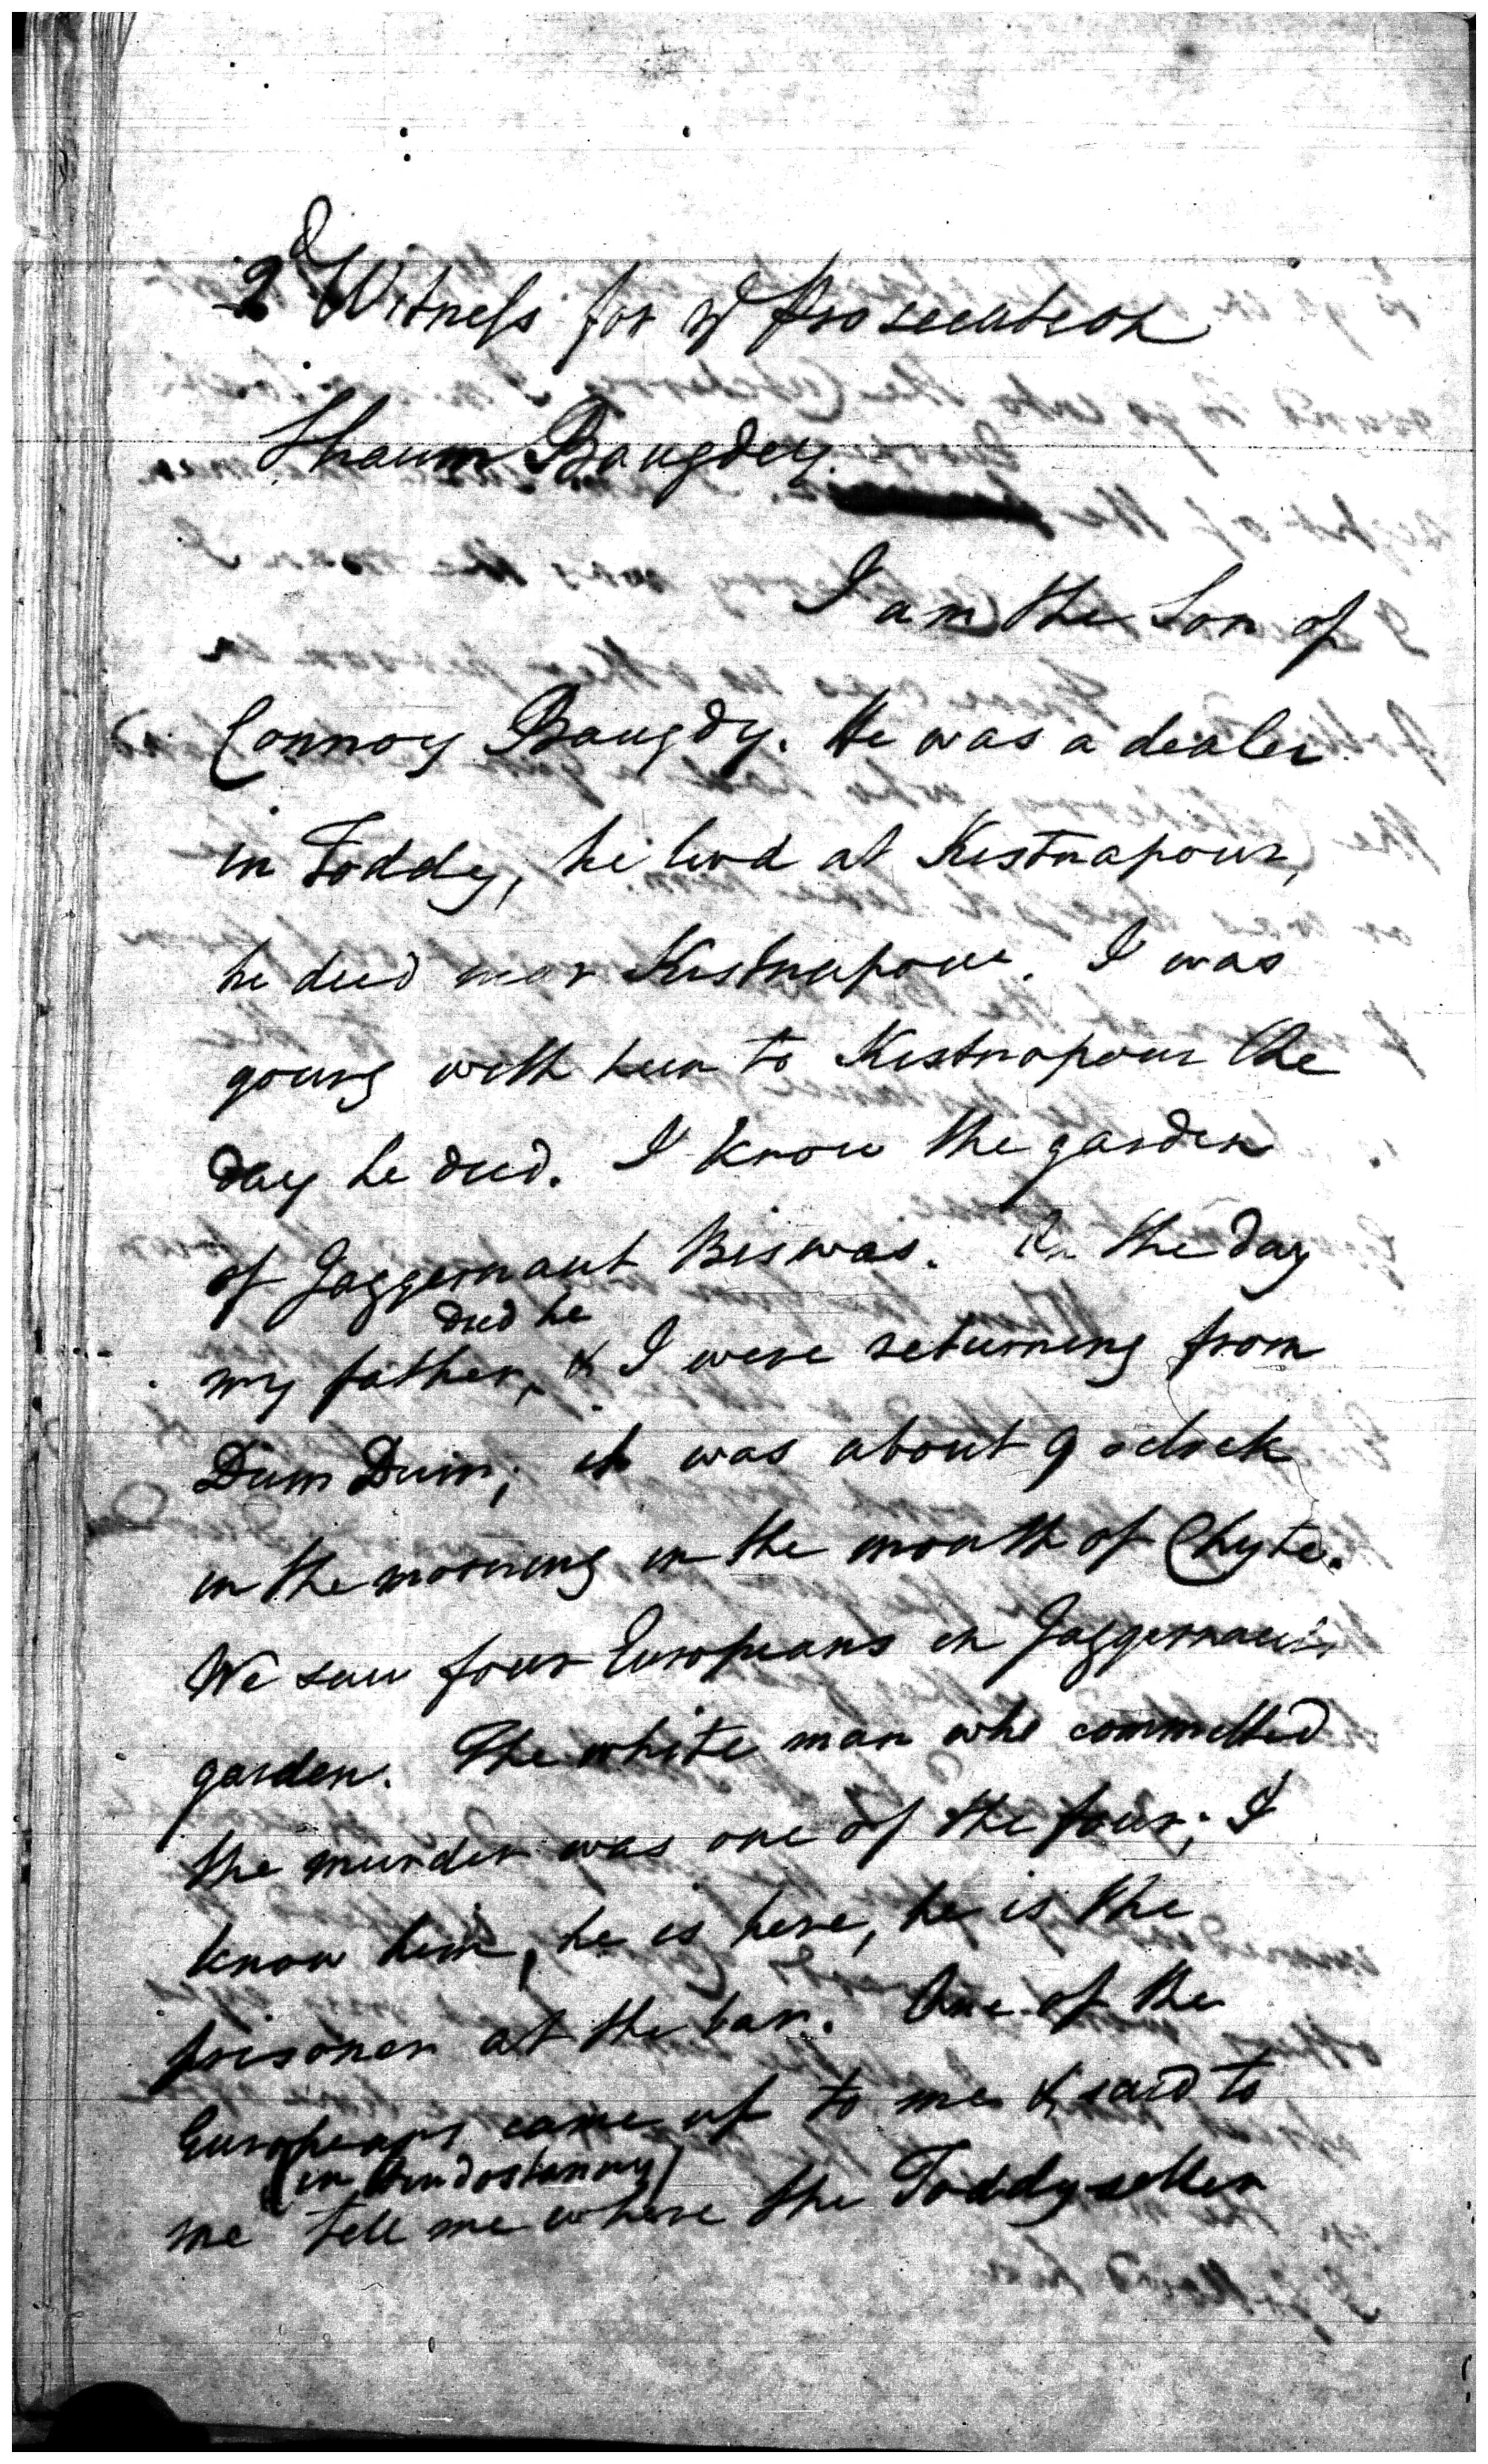 2d Witness for ye Prosecution
Shaum Baugdey.
I am the Son of
Connoy Baugdy. He was a dealer
in Toddy, he livd at Kistnapour,
he died near Kistnapour. I was
going with him to Kistnapour the
day he died. I know the garden
of Jaggernaut Biswas. On the day
died he
my father, & I were returning from
Dum Dum; it was about 9 oclock
in the morning in the month of Chyte.
We saw four Europeans in Jaggernaut's
garden. The white man who committed
the murder was one of the four; I
know him, he is here, he is the
prisoner at the bar. One of the
Europeans came up to me & said to
(in Hindostanny)
me tell me where the Toddyseller